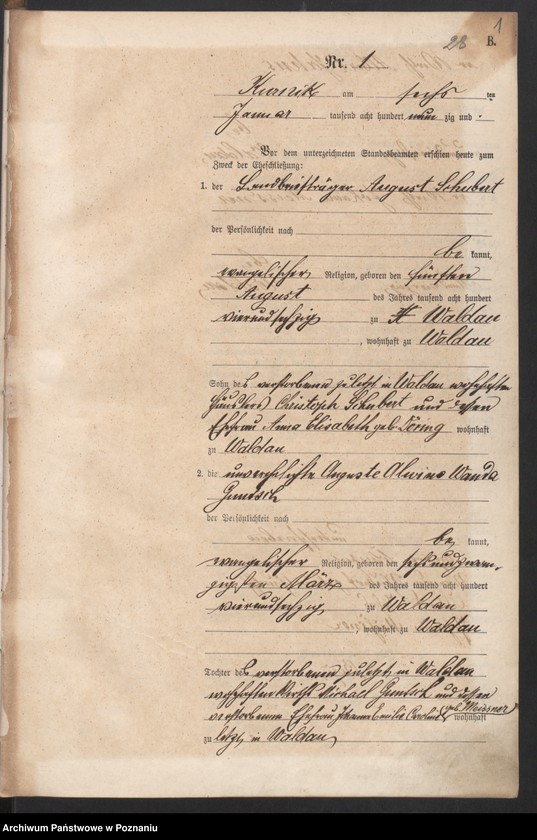 28 1
B.
Nr. 1
Kurnik am sechs ten
Januar tausend acht hundert neun zig und
Vor dem unterzeichneten Standesbeamten erschien heute zum
Zweck der Eheschließung:
1. der Landbriefträger August Schubert
der Persönlichkeit nach
be kannt,
evangelischer Religion, geboren den fünften
August des Jahres tausend acht hundert
vierundsechzig zu Waldau
, wohnhaft zu Waldau
Sohn des verstorbenen zuletzt in Waldau wohnhaften
Häuslers Christoph Schubert und dessen
Ehefrau Anna Elisabeth geb. wohnhaft
zu Waldau
2. die unverehelichte Auguste Alwine Wanda
der Persönlichkeit nach
be kannt,
evangelischer Religion, geboren den sechsundzwan-
zigsten März des Jahres tausend acht hundert
vierundsechzig zu Waldau
, wohnhaft zu Waldau
Tochter des verstorbenen zuletzt in Waldau
wohnhaften Michael und dessen
verstorbenen Ehefrau Johanne Emilie geb. Meissner wohnhaft
zu letzt in Waldau
Archiwum Państwowe w Poznaniu